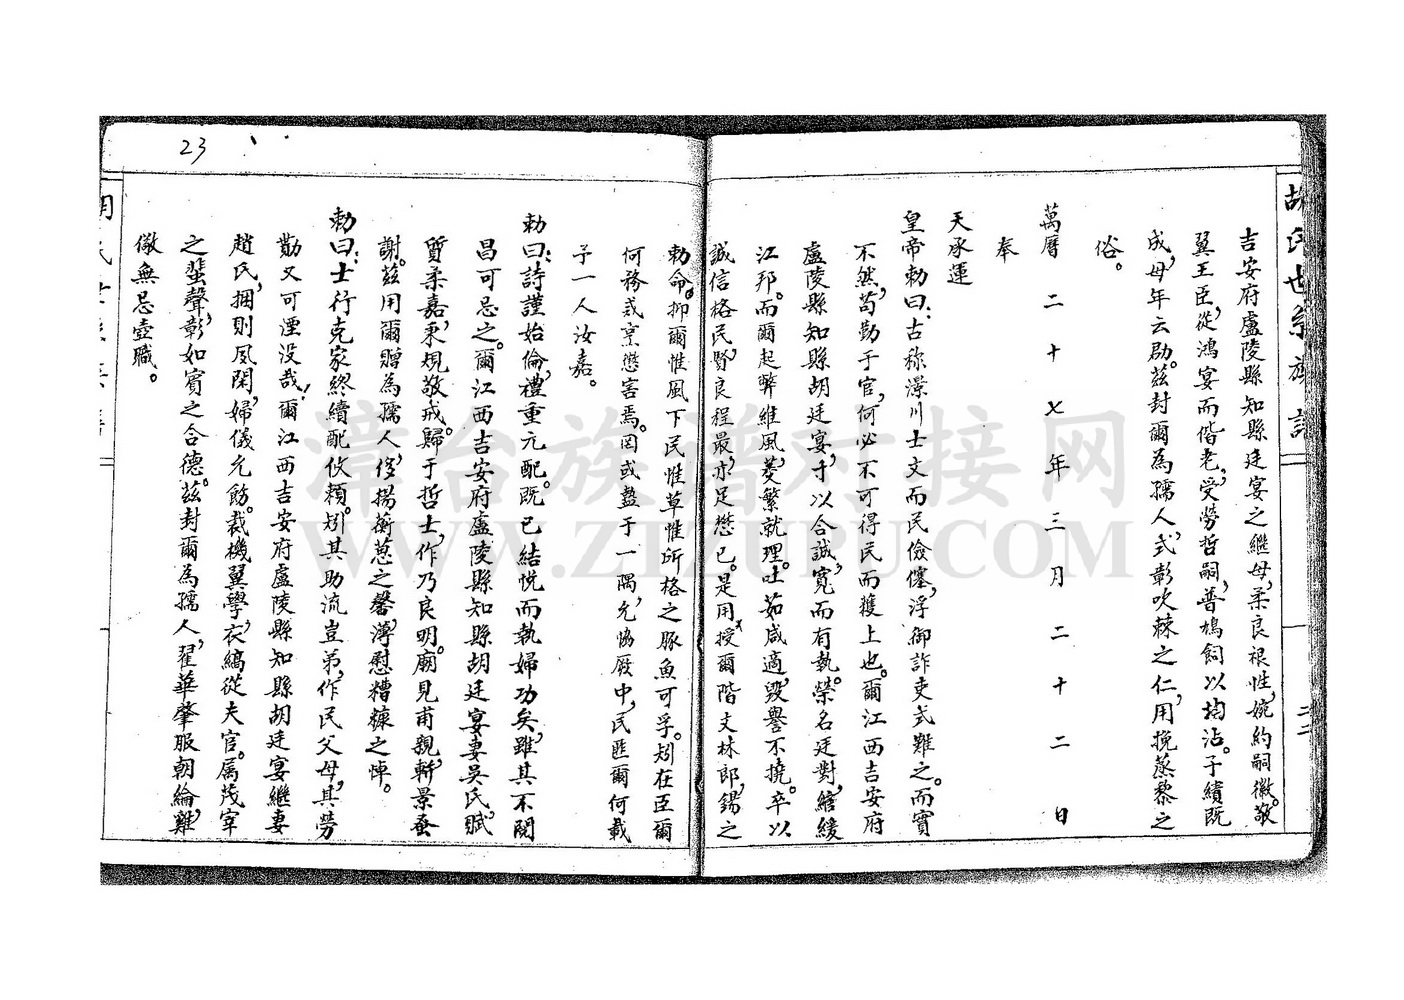 吉安府盧陵縣知縣廷宴之繼母,柔良根性,婉約嗣徽。敬
翼王臣,從鴻宴而偕老,受勞哲嗣,普鳩飼以均沾。子績既
成,母年云劭。茲封爾為孺人,式彰吹棘之仁,用挽蒸黎之
俗。
萬曆二十七年三月二十二日
奉
天承運
皇帝勅曰:古称澴川士文而民儉僿,浮御詐吏式難之。而實
不然,苟勤于官,何必不可得民而獲上也。爾江西吉安府
盧陵縣知縣胡廷宴,寸以合誠,寬而有執。榮名廷對,綰綬
江邦。而爾起弊維風,蔆繁就理。吐茹咸適,毀譽不撓。卒以
誠信格民,賢良程最,亦足懋已。是用授爾階文林郎,錫之
勅命。抑爾惟風下民惟草惟所格之豚魚可孚。矧在臣爾
何務或烹懲害焉。因或盡于一隅,允協厥中,民匪爾何戴
予一人汝嘉。
勅曰:詩謹始倫,禮重元配。既已結悅而執婦功矣,雖其不閱
昌可忌之。爾江西吉安府盧陵縣知縣胡廷宴妻吳氏,賦
質柔嘉,秉規敬戒。歸于哲士,作乃良明。廟見甫親,斬景蚤
謝。茲用爾贈為孺人,侈揚蘅蒽之馨,溥慰糟糠之悼。
勅曰:士行克家終續配攸賴。矧其助流豈弟,作民父母,其勞
勩又可湮没哉!爾江西吉安府盧陵縣知縣胡廷宴繼妻
趙氏,捆則夙閑,婦儀允飭。裁機翼學,衣縞從夫官。属茂宰
之蜚聲,彰如賓之合德。茲封爾為孺人,翟華肇服朝綸,雞
儆無忌壺職。
胡氏世系族譜
23